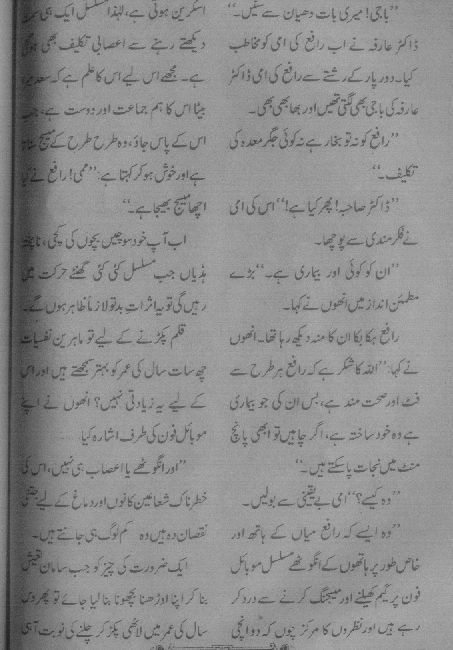 ’’باجی! میری بات دھیان سے سنیں۔‘‘
ڈاکٹر عارفہ نے اب رافع کی امی کو مخاطب
کیا۔ دور پار کے رشتے سے رافع کی امی ڈاکٹر
عارفہ کی باجی بھی لگتی تھیں اور بھابھی بھی۔
’’رافع کو نہ تو بخار ہے نہ کوئی جگر معدہ کی
تکلیف۔‘‘
’’ڈاکٹر صاحبہ! پھر کیا ہے!‘‘ اس کی امی
نے فکر مندی سے پوچھا۔
’’ان کو کوئی اور بیماری ہے۔‘‘ بڑے
مطمئن انداز میں انھوں نے کہا۔
رافع ہکا بکا ان کا منہ دیکھ رہا تھا۔ انھوں
نے کہا: ’’اللہ کا شکر ہے کہ رافع ہر طرح سے
فٹ اور صحت مند ہے، بس ان کی جو بیماری
ہے وہ خود ساختہ ہے، اگر چاہیں تو ابھی پانچ
منٹ میں نجات پا سکتے ہیں۔‘‘
’’وہ کیسے؟‘‘ امی بے یقینی سے بولیں۔
’’وہ ایسے کہ رافع میاں کے ہاتھ اور
خاص طور پر ہاتھوں کے انگوٹھے مسلسل موبائل
فون پر گیم کھیلنے اور میسجنگ کرنے سے درد کر
رہے ہیں اور نظروں کا مرکز چوں کہ دو انچی
اسکرین ہوتی ہے، لہٰذا مسلسل ایک ہی
دیکھتے رہنے سے اعصابی تکلیف بھی ہو
ہے۔ مجھے اس لیے اس کا علم ہے کہ سعد میرا
بیٹا اس کا ہم جماعت اور دوست ہے، جب
اس کے پاس جاؤ، وہ طرح طرح کے میسج سناتا
ہے اور خوش ہو کر کہتا ہے: ’’ممی! رافع نے کیا
اچھا میسج بھیجا ہے۔‘‘
اب آپ خود سوچیں بچوں کی کچی، ناپختہ
ہڈیاں جب مسلسل کئی کئی گھنٹے حرکت میں
رہیں گی تو یہ اثرات بد تو لازماً ظاہر ہوں گے۔
قلم پکڑنے کے لیے تو ماہرین نفسیات
چھ سات سال کی عمر کو بہتر سمجھتے ہیں اور اس
کے لیے یہ زیادتی نہیں؟ انھوں نے اپنے
موبائل فون کی طرف اشارہ کیا
’’اور انگوٹھے یا اعصاب ہی نہیں، اس کی
خطرناک شعاعیں کانوں اور دماغ کے لیے جتنی
نقصان دہ ہیں وہ کم لوگ ہی جانتے ہیں۔
ایک ضرورت کی چیز کو جب سامان تعیش
بنا کر اپنا اوڑھنا بچھونا بنا لیا جائے تو پھر دس
سال کی عمر میں لاٹھی پکڑ کر چلنے کی نوبت آ ہی